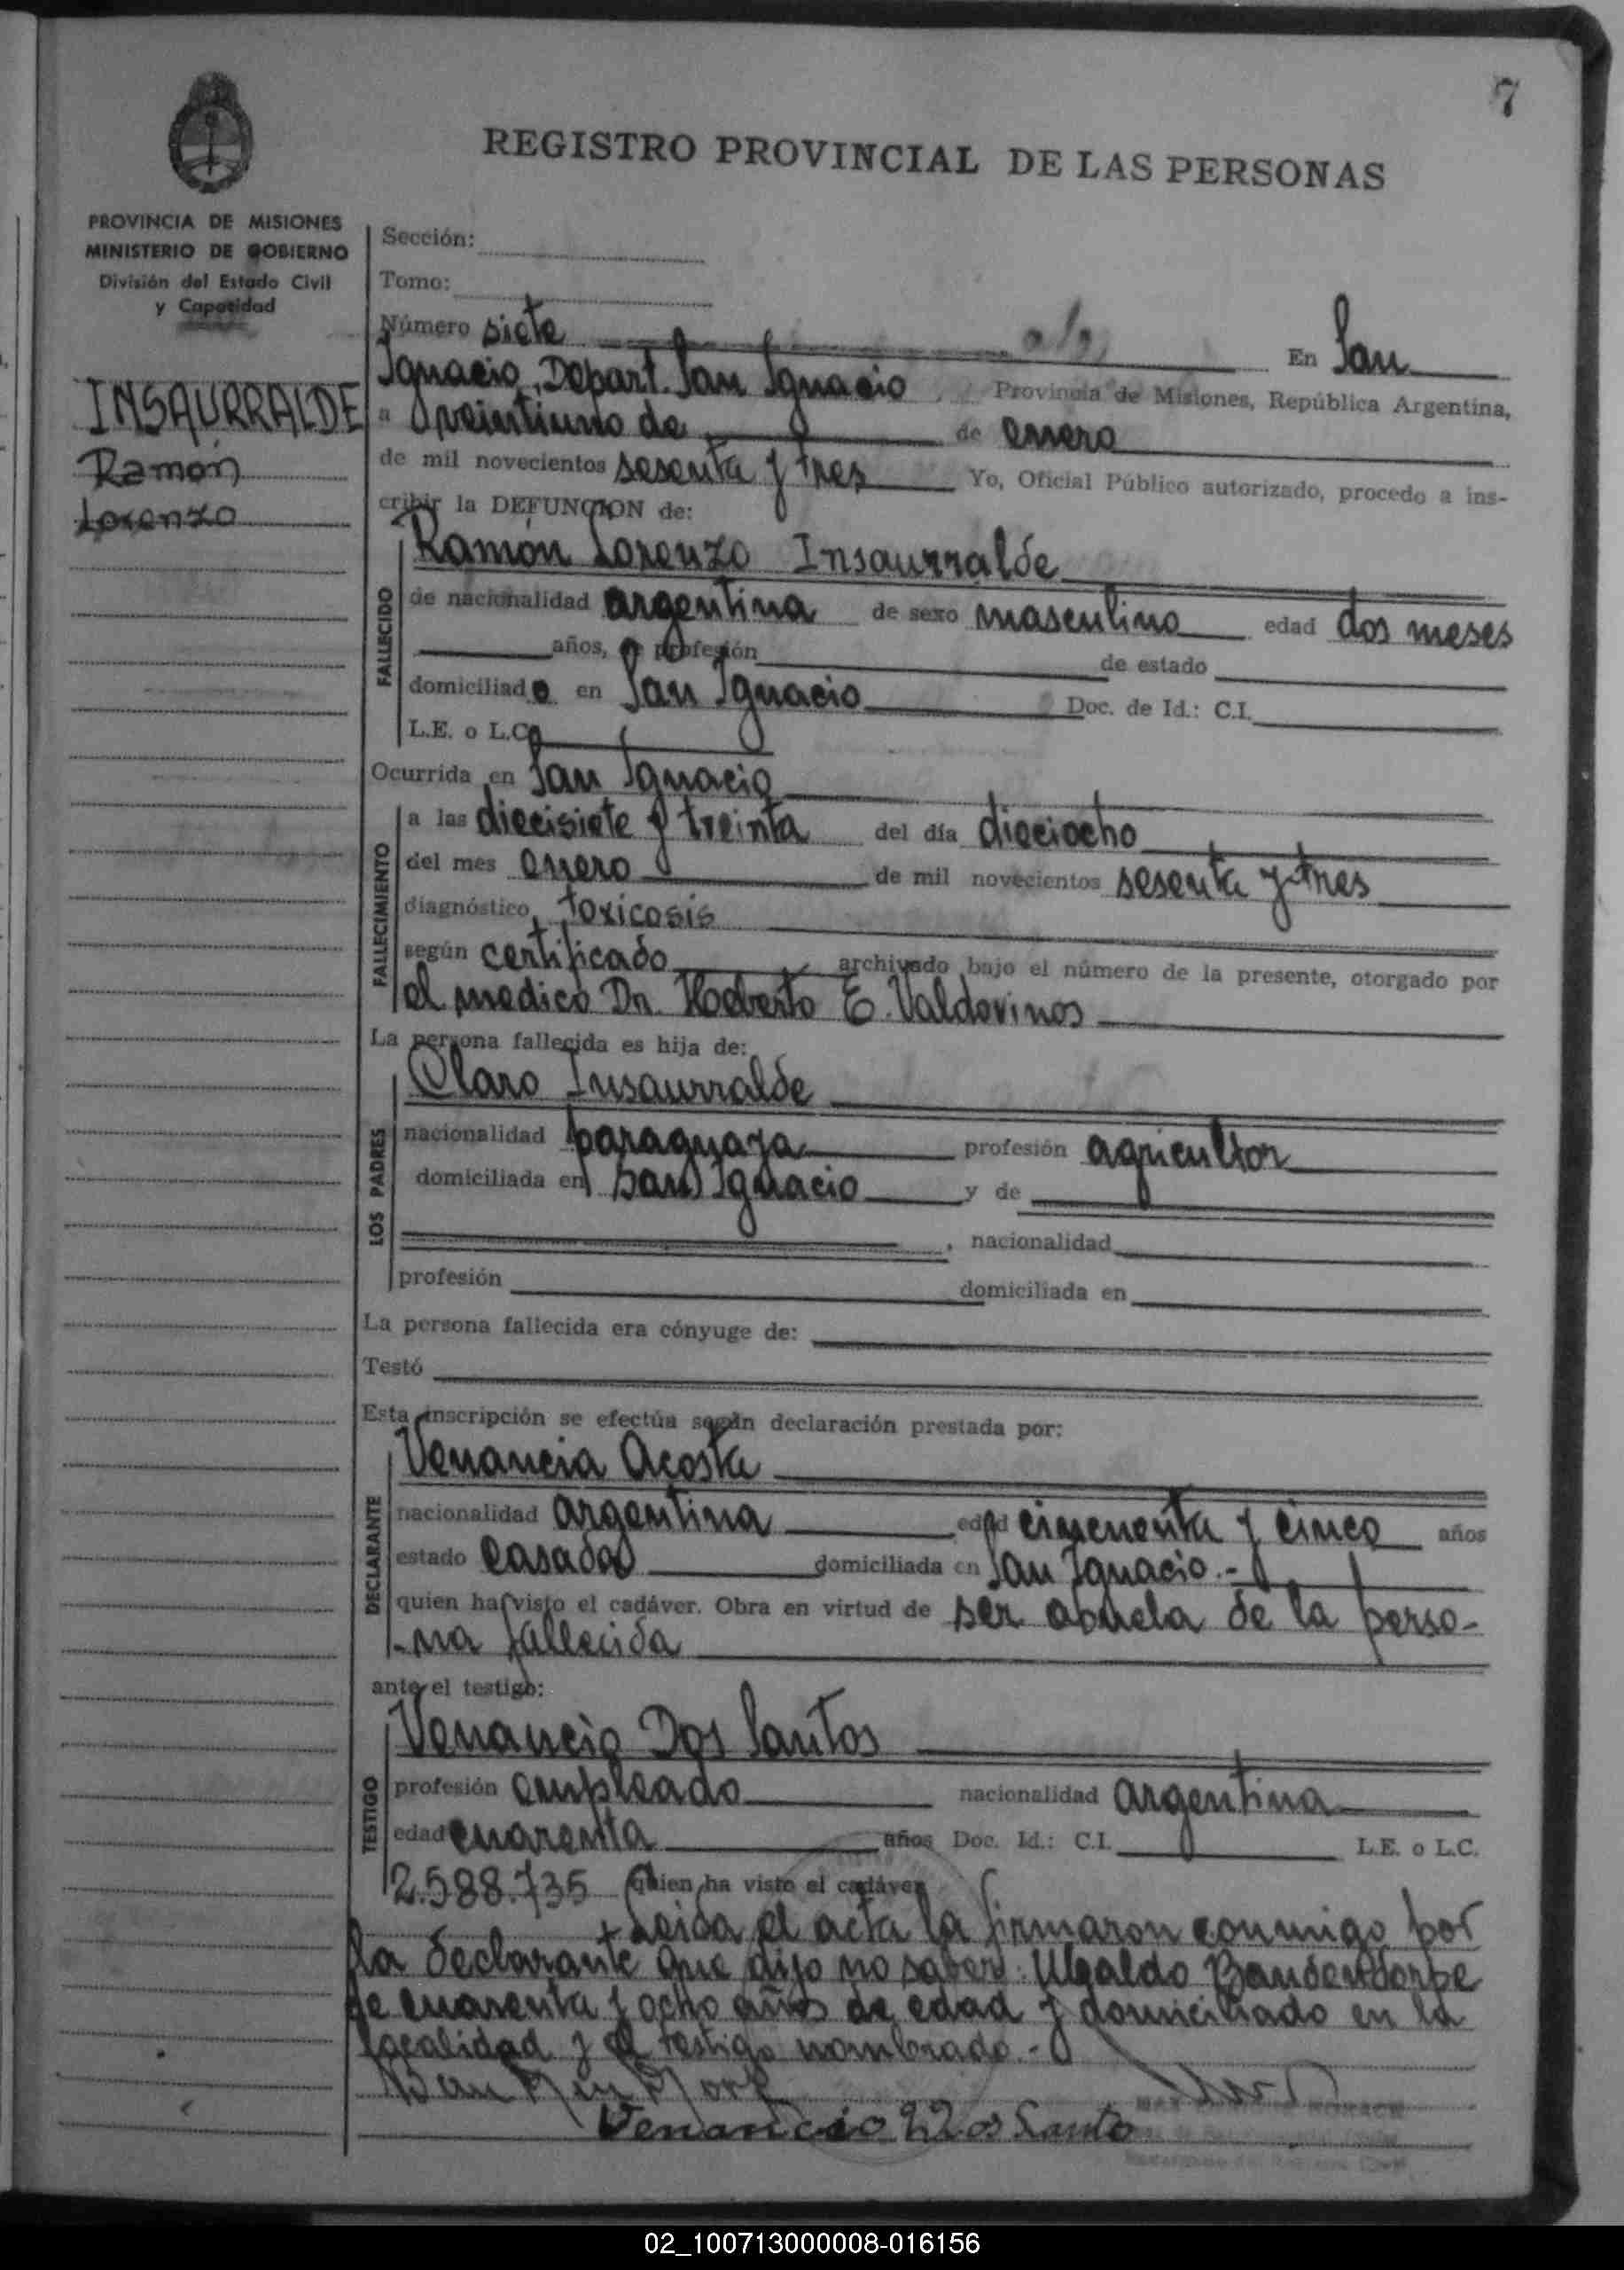 7
REGISTRO PROVINCIAL DE LAS PERSONAS
PROVINCIA DE MISIONES
MINISTERIO DE GOBIERNO
División del Estado Civil
y Capacidad
INSAURRALDE
Ramón
Lorenzo
Sección:
Tomo:
Número siete En San
Ignacio, Depart. San Ignacio Provincia de Misiones, República Argentina,
a veintiuno de de enero
de mil novecientos sesenta y tres Yo, Oficial Público autorizado, procedo a ins-
cribir la DEFUNCION de:
Ramón Lorenzo Insaurralde
FALLECIDO
de nacionalidad argentina de sexo masculino edad dos meses
años, de profesión de estado
domiciliado en San Ignacio Doc. de Id.: C.I.
L.E. o L.C.
Ocurrida en San Ignacio
FALLECIMIENTO
a las diecisiete y treinta del día dieciocho
del mes enero de mil novecientos sesenta y tres
diagnóstico, toxicosis
según certificado archivado bajo el número de la presente, otorgado por
el medico Dr. E. Valdovinos
La persona fallecida es hija de:
Claro Insaurralde
LOS PADRES
nacionalidad paraguaya profesión agricultor
domiciliada en San Ignacio y de
, nacionalidad
profesión domiciliada en
La persona fallecida era cónyuge de:
Testó
Esta inscripción se efectúa según declaración prestada por:
Venancia Acosta
DECLARANTE
nacionalidad argentina edad cincuenta y cinco años
estado casada domiciliada en San Ignacio.-
quien ha visto el cadáver. Obra en virtud de ser abuela de la perso-
-na fallecida
ante el testigo:
Venancio Dos Santos
TESTIGO
profesión empleado nacionalidad argentina
edad cuarenta años Doc. Id.: C.I. L.E. o L.C.
2.588.735 quien ha visto el cadáver
Leida el acta la firmaron conmigo por
la declarante que dijo no saber: Ubaldo
de cuarenta y ocho años de edad y domiciliado en la
localidad y el testigo nombrado.-
Venancio Dos Santo
02_100713000008-016156